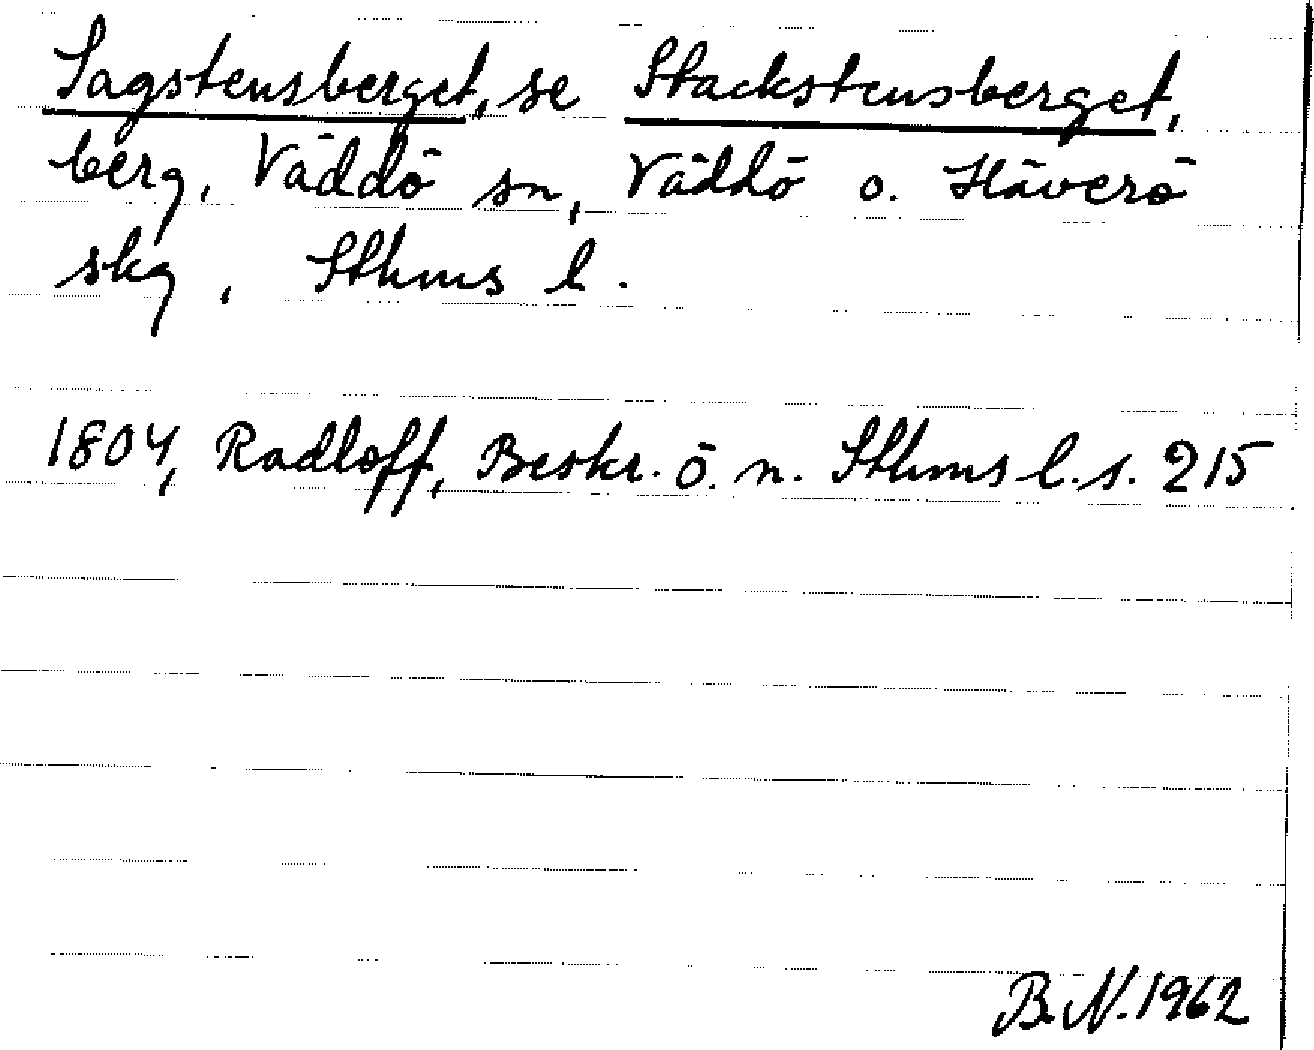 Sagstensberget, se Stackstensberget,
berg, Väddö sn, Väddö o. Häverö
skg, Sthms l.
1804, Radloff, Beskr. ö. n. Sthms l. s. 215
B.N. 1962